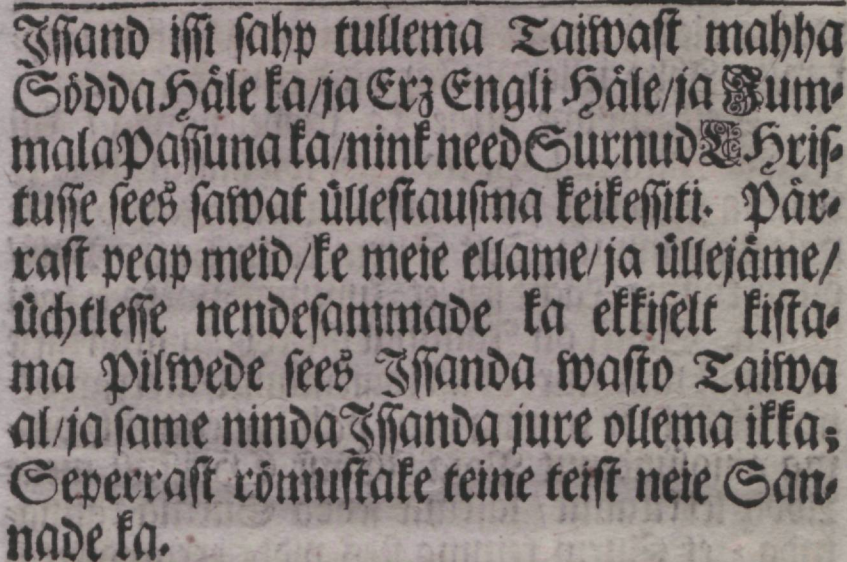 Jſſand iſſi ſahp tullema Taiwaſt mahha
Södda Häle ka/ja Erz Engli Häle/ja Jum⸗
mala Paſſuna ka/nink need Surnud CHriſ⸗
tuſſe ſees ſawat ülleſtauſma keikeſſiti. Pär⸗
raſt peap meid/ke meie ellame/ja üllejäme/
üchtleſſe nendeſammade ka ekkiſelt kiſta⸗
ma Pilwede ſees Jſſanda waſto Taiwa
al/ja ſame ninda Jſſanda jure ollema ikka;
Seperraſt römuſtake teine teiſt neie San⸗
nade ka.